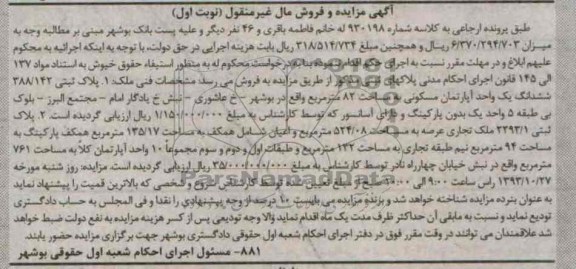 آگهی مزایده و فروش مال غیرمنقول (نوبت اول)
طبق پرونده ارجاعی به کلاسه شماره ۹۳۰۱۹۸ له خانم فاطمه باقری و ۴۶ نفر دیگر و علیه پست بانک بوشهر مبنی بر مطالبه وجه به
میزان ۶/۳۷۰/۲۹۴/۷۰۳ ریال و همچنین مبلغ ۳۱۸/۵۱۴/۷۳۴ ریال بابت هزینه اجرایی در حق دولت، با توجه به اینکه اجرائیه به محکوم
علیهم ابلاغ و در مهلت مقرر نسبت به اجرای حکم اقدام ننموده بنا به درخواست محکوم له به منظور استیفاء حقوق خویش به استناد مواد ۱۳۷
الی ۱۴۵ قانون اجرای احکام مدنی پلاکهای ثبتی مذکور از طریق مزایده به فروش می رسد: مشخصات فنی ملک: ۱. پلاک ثبتی ۳۸۸/۱۴۲
ششدانگ یک واحد آپارتمان مسکونی به مساحت ۸۲ مترمربع واقع در بوشهر - خ عاشوری - نبش خ یادگار امام - مجتمع البرز - بلوک
بی طبقه ۵ واحد یک بدون پارکینگ و دارای آسانسور که توسط کارشناس به مبلغ ۱/۱۵۰/۰۰۰/۰۰۰ ریال ارزیابی گردیده است. ۲. پلاک
ثبتی ۲۲۹۳/۱ ملک تجاری عرصه به مساحت ۵۲۴/۰۸ مترمربع و اعیان شامل همکف به مساحت ۱۳۵/۱۷ مترمربع همکف پارکینگ به
مساحت ۹۴ مترمربع نیم طبقه تجاری به مساحت ۱۳۲ مترمربع و طبقات اول و دوم و سوم مجموعاً ۱۰ واحد آپارتمان کلاً به مساحت ۷۶۱
مترمربع واقع در نبش خیابان چهارراه نادر توسط کارشناس به مبلغ ۳۵/۰۰۰/۰۰۰/۰۰۰ ریال ارزیابی گردیده است. مزایده: روز شنبه مورخه
۱۳۹۳/۱۰/۲۷ راس ساعت ۹:۰۰ الی ۱۰:۰۰ صبح از مبلغ تعیین شده توسط کارشناس شروع و شخصی که بالاترین قمیت را پیشنهاد نماید
به عنوان برنده مزایده شناخته خواهد شد و برنده مزایده می بایست ۱۰ درصد از وجه پیشنهادی را نقدا و فی المجلس به حساب دادگستری
تودیع نماید و نسبت به مابقی آن حداکثر ظرف مدت یک ماه اقدام نماید والا وجه تودیعی پس از کسر هزینه مزایده به نفع دولت ضبط خواهد
شد علاقمندان می توانند در وقت مقرر فوق در دفتر اجرای احکام شعبه اول حقوقی دادگستری بوشهر جهت برگزاری مزایده حضور یابند.
۸۸۱- مسئول اجرای احکام شعبه اول حقوقی بوشهر
ParsNamadData